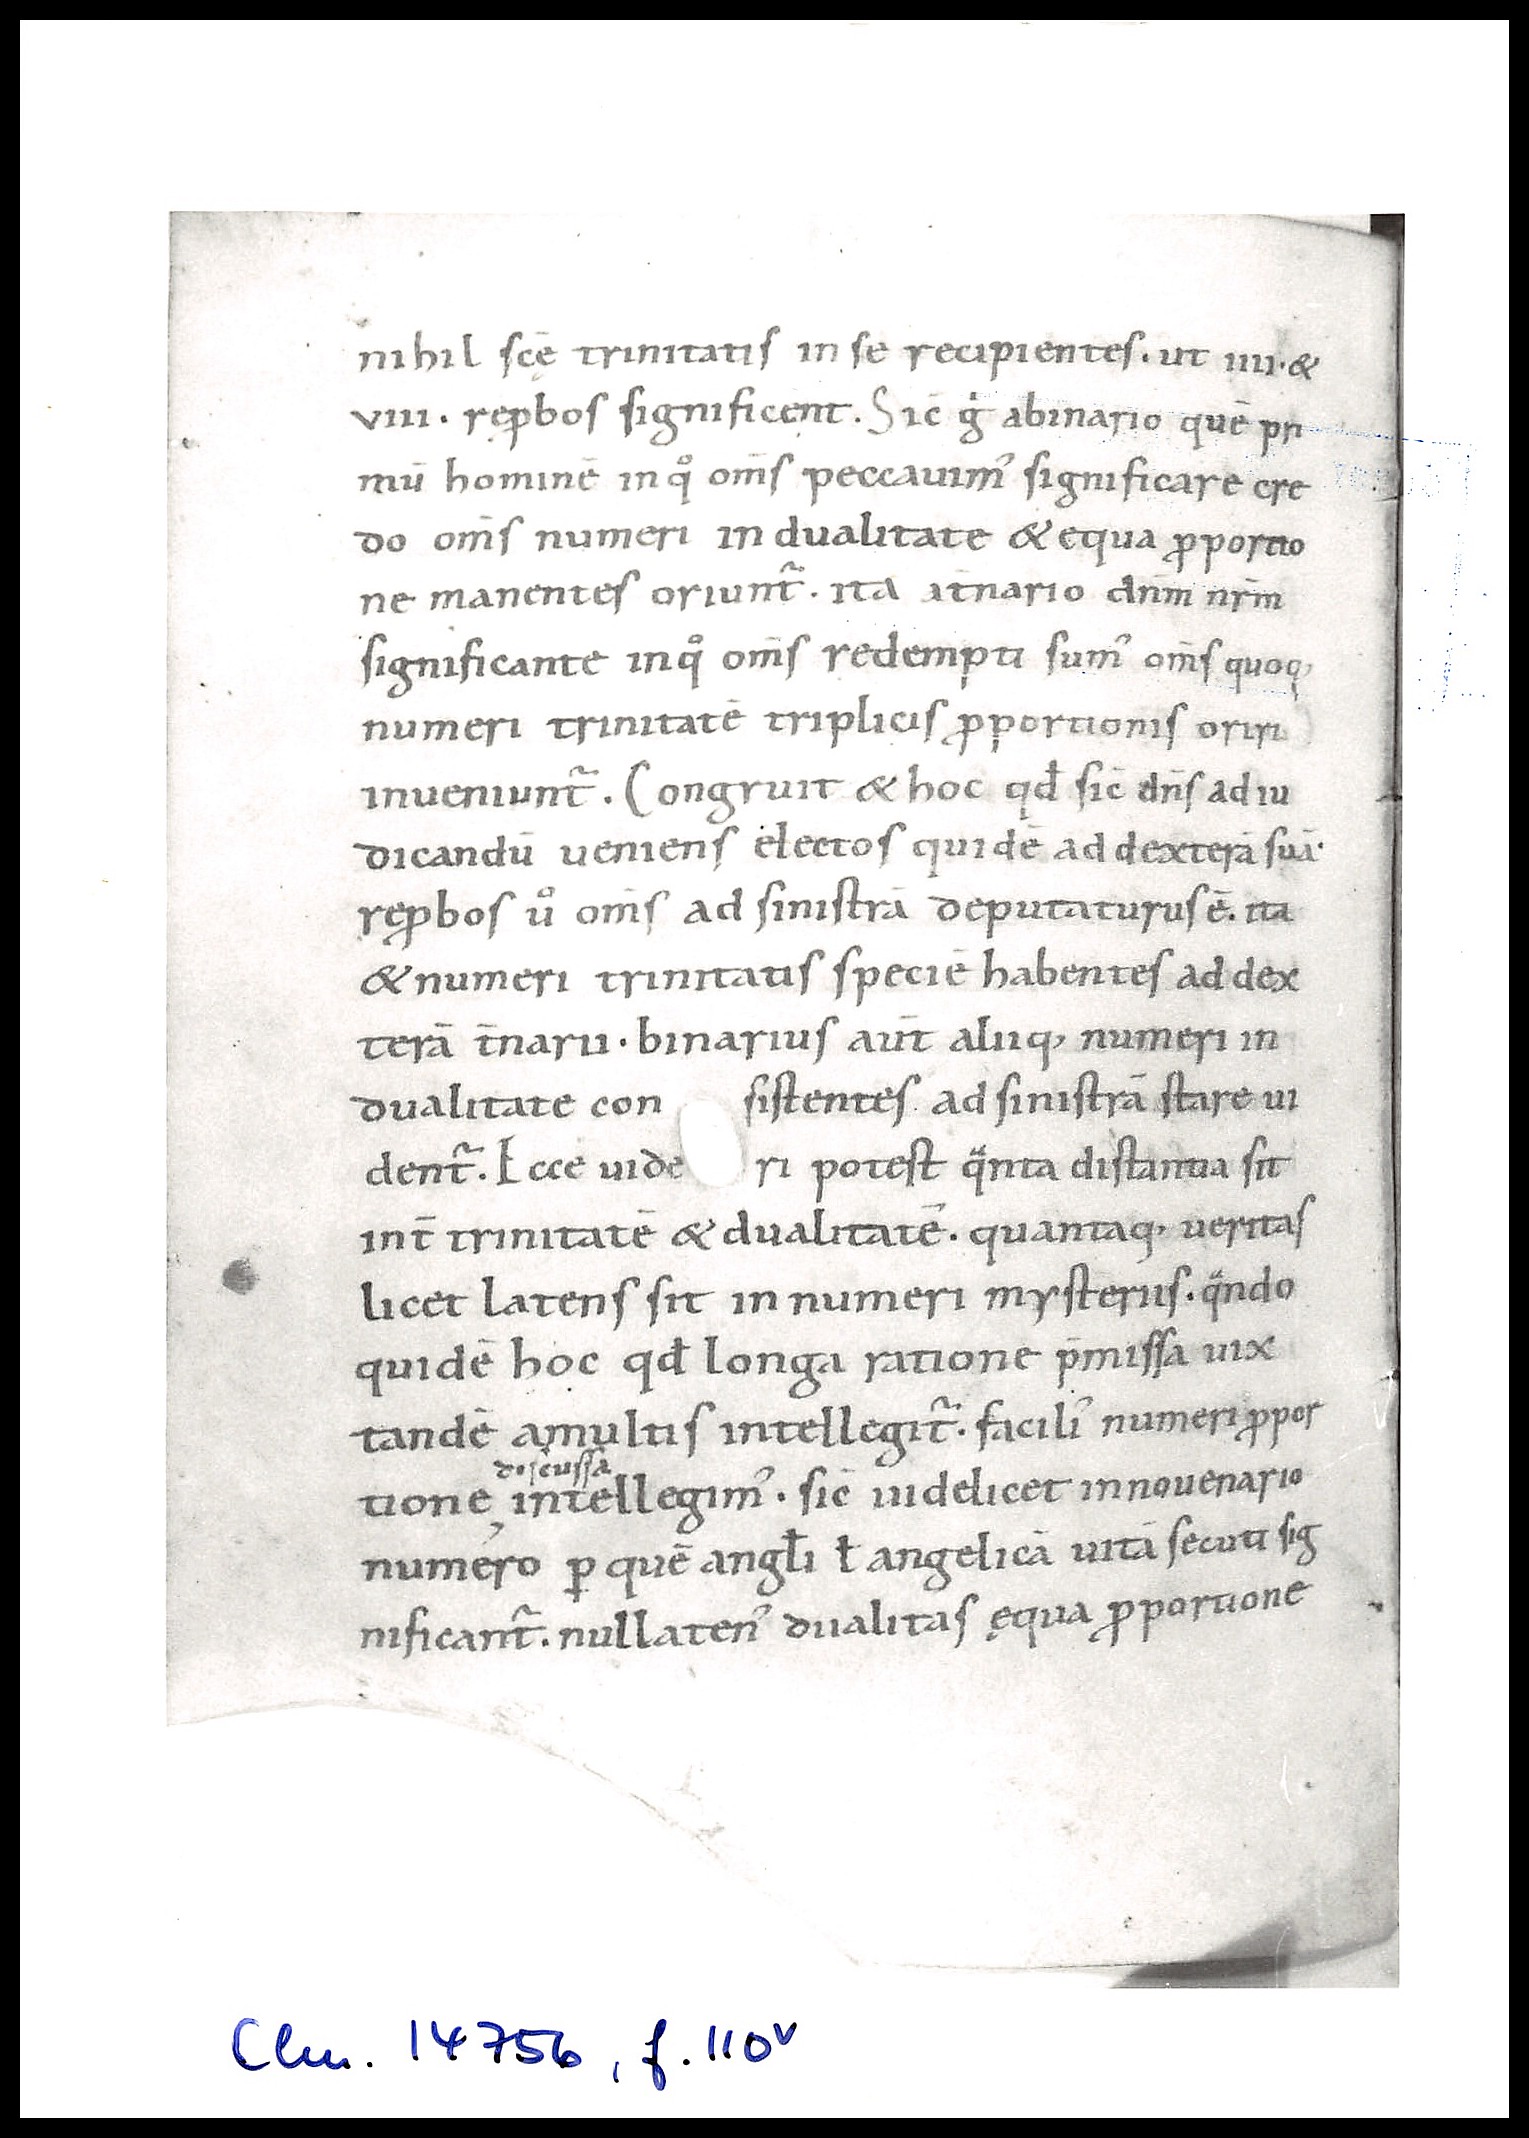 nihil scē trinitatis in se recipientes. ut iiii. &
viii. reꝓbos significent. Sic ġ abinario quē pri
mū hominē inqͦ om̄s peccauim᾿ significare cre
do om̄s numeri in dualitate & equa ꝓportio
ne manentes oriunt᷑. ita at̄nario dn̄m nr̄m
significante inqͦ om̄s redempti sum᾿ om̄s quoq,
numeri trinitatē triplicis ꝓportionis oriri
inueniunt᷑. Congruit & hoc qd̄ sic̄ dn̄s ad iu
dicandū ueniens electos quidē ad dexterā suā.
reꝓbos uͦ om̄s ad sinistrā deputaturus ē. ita
& numeri trinitatis speciē habentes ad dex
terā t̄narii. binarius aūt aliiq, numeri in
dualitate con sistentes ad sinistrā stare ui
dent᷑. Ecce uide ri potest qᷓnta distantia sit
int̄ trinitatē & dualitatē. quantaq, ueritas
licet latens sit in numeri mysteriis. qᷓndo
quidē hoc qd̄ longa ratione p̄missa uix
tandē amultis intellegit᷑. facili᾿ numeri ꝓpor
discussa
tione, intellegim᾿. sic̄ uidelicet innouenario
numero ꝑ quē angl̄i ł angelicā uitā secuti sig
nificant᷑. nullaten᾿ dualitas ęqua ꝓportione
Clm. 14756, f. 110v